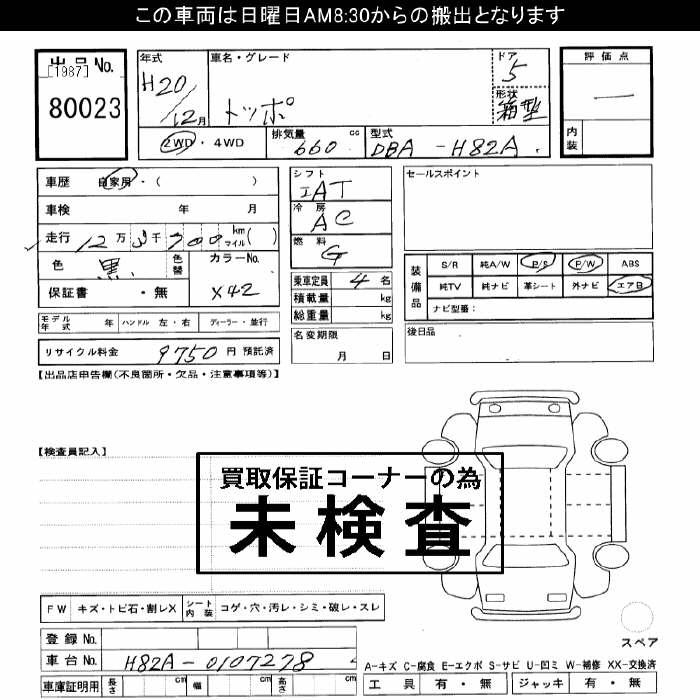 この車両は日曜日AM8:30からの搬出となります
出品No.
[1987]
80023
年式
H20/12月
車名・グレード
トッポ
ドア
5
形状
箱型
評価点
—
内装
2WD・4WD
排気量 660 cc
型式 DBA-H82A
車歴 自家用・( )
車検 年 月
走行 12万 3千 700 km マイル( )
色 黒 色替
カラーNo.
X42
保証書 ・無
シフト
IAT
冷房
AC
燃料
G
乗車定員 4 名
積載量 kg
総重量 kg
セールスポイント
装備品
S/R 純A/W P/S P/W ABS
純TV 純ナビ 革シート 外ナビ エアB
ナビ型番:
モデル年式 年 ハンドル 左・右 ディーラー・並行
名変期限
月 日
後日品
リサイクル料金 9750 円 預託済
【出品店申告欄(不良箇所・欠品・注意事項等)】
【検査員記入】
買取保証コーナーの為
未検査
FW キズ・トビ石・割レX シート内装 コゲ・穴・汚レ・シミ・破レ・スレ
スペア
登録No.
車台No. H82A-0107278
A-キズ C-腐食 E-エクボ S-サビ U-凹ミ W-補修 XX-交換済
車庫証明用 長さ cm 幅 cm 高さ cm
工具 有・無 ジャッキ 有・無